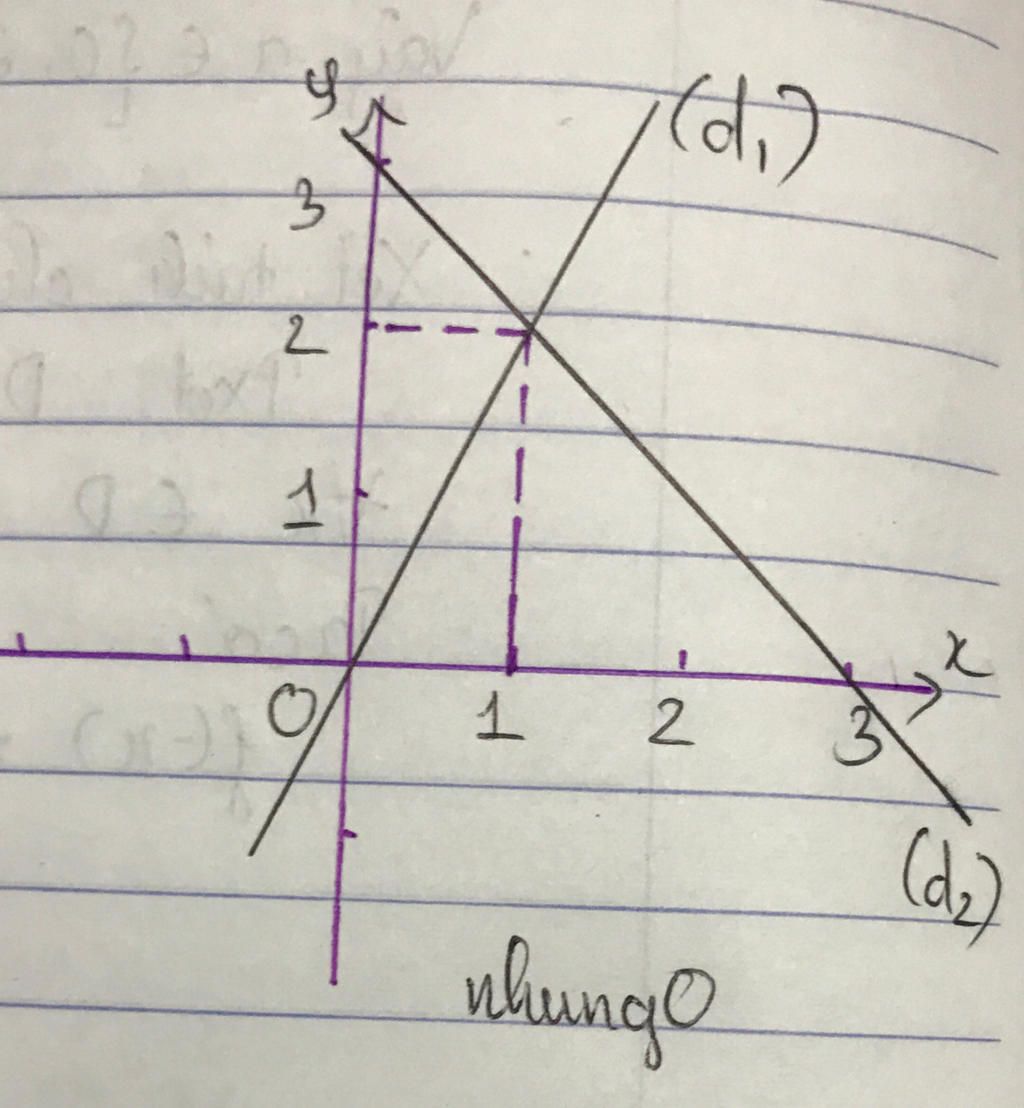 y
(d₁)
3
2
1
x
0 1 2 3
(d₂)
nhung0